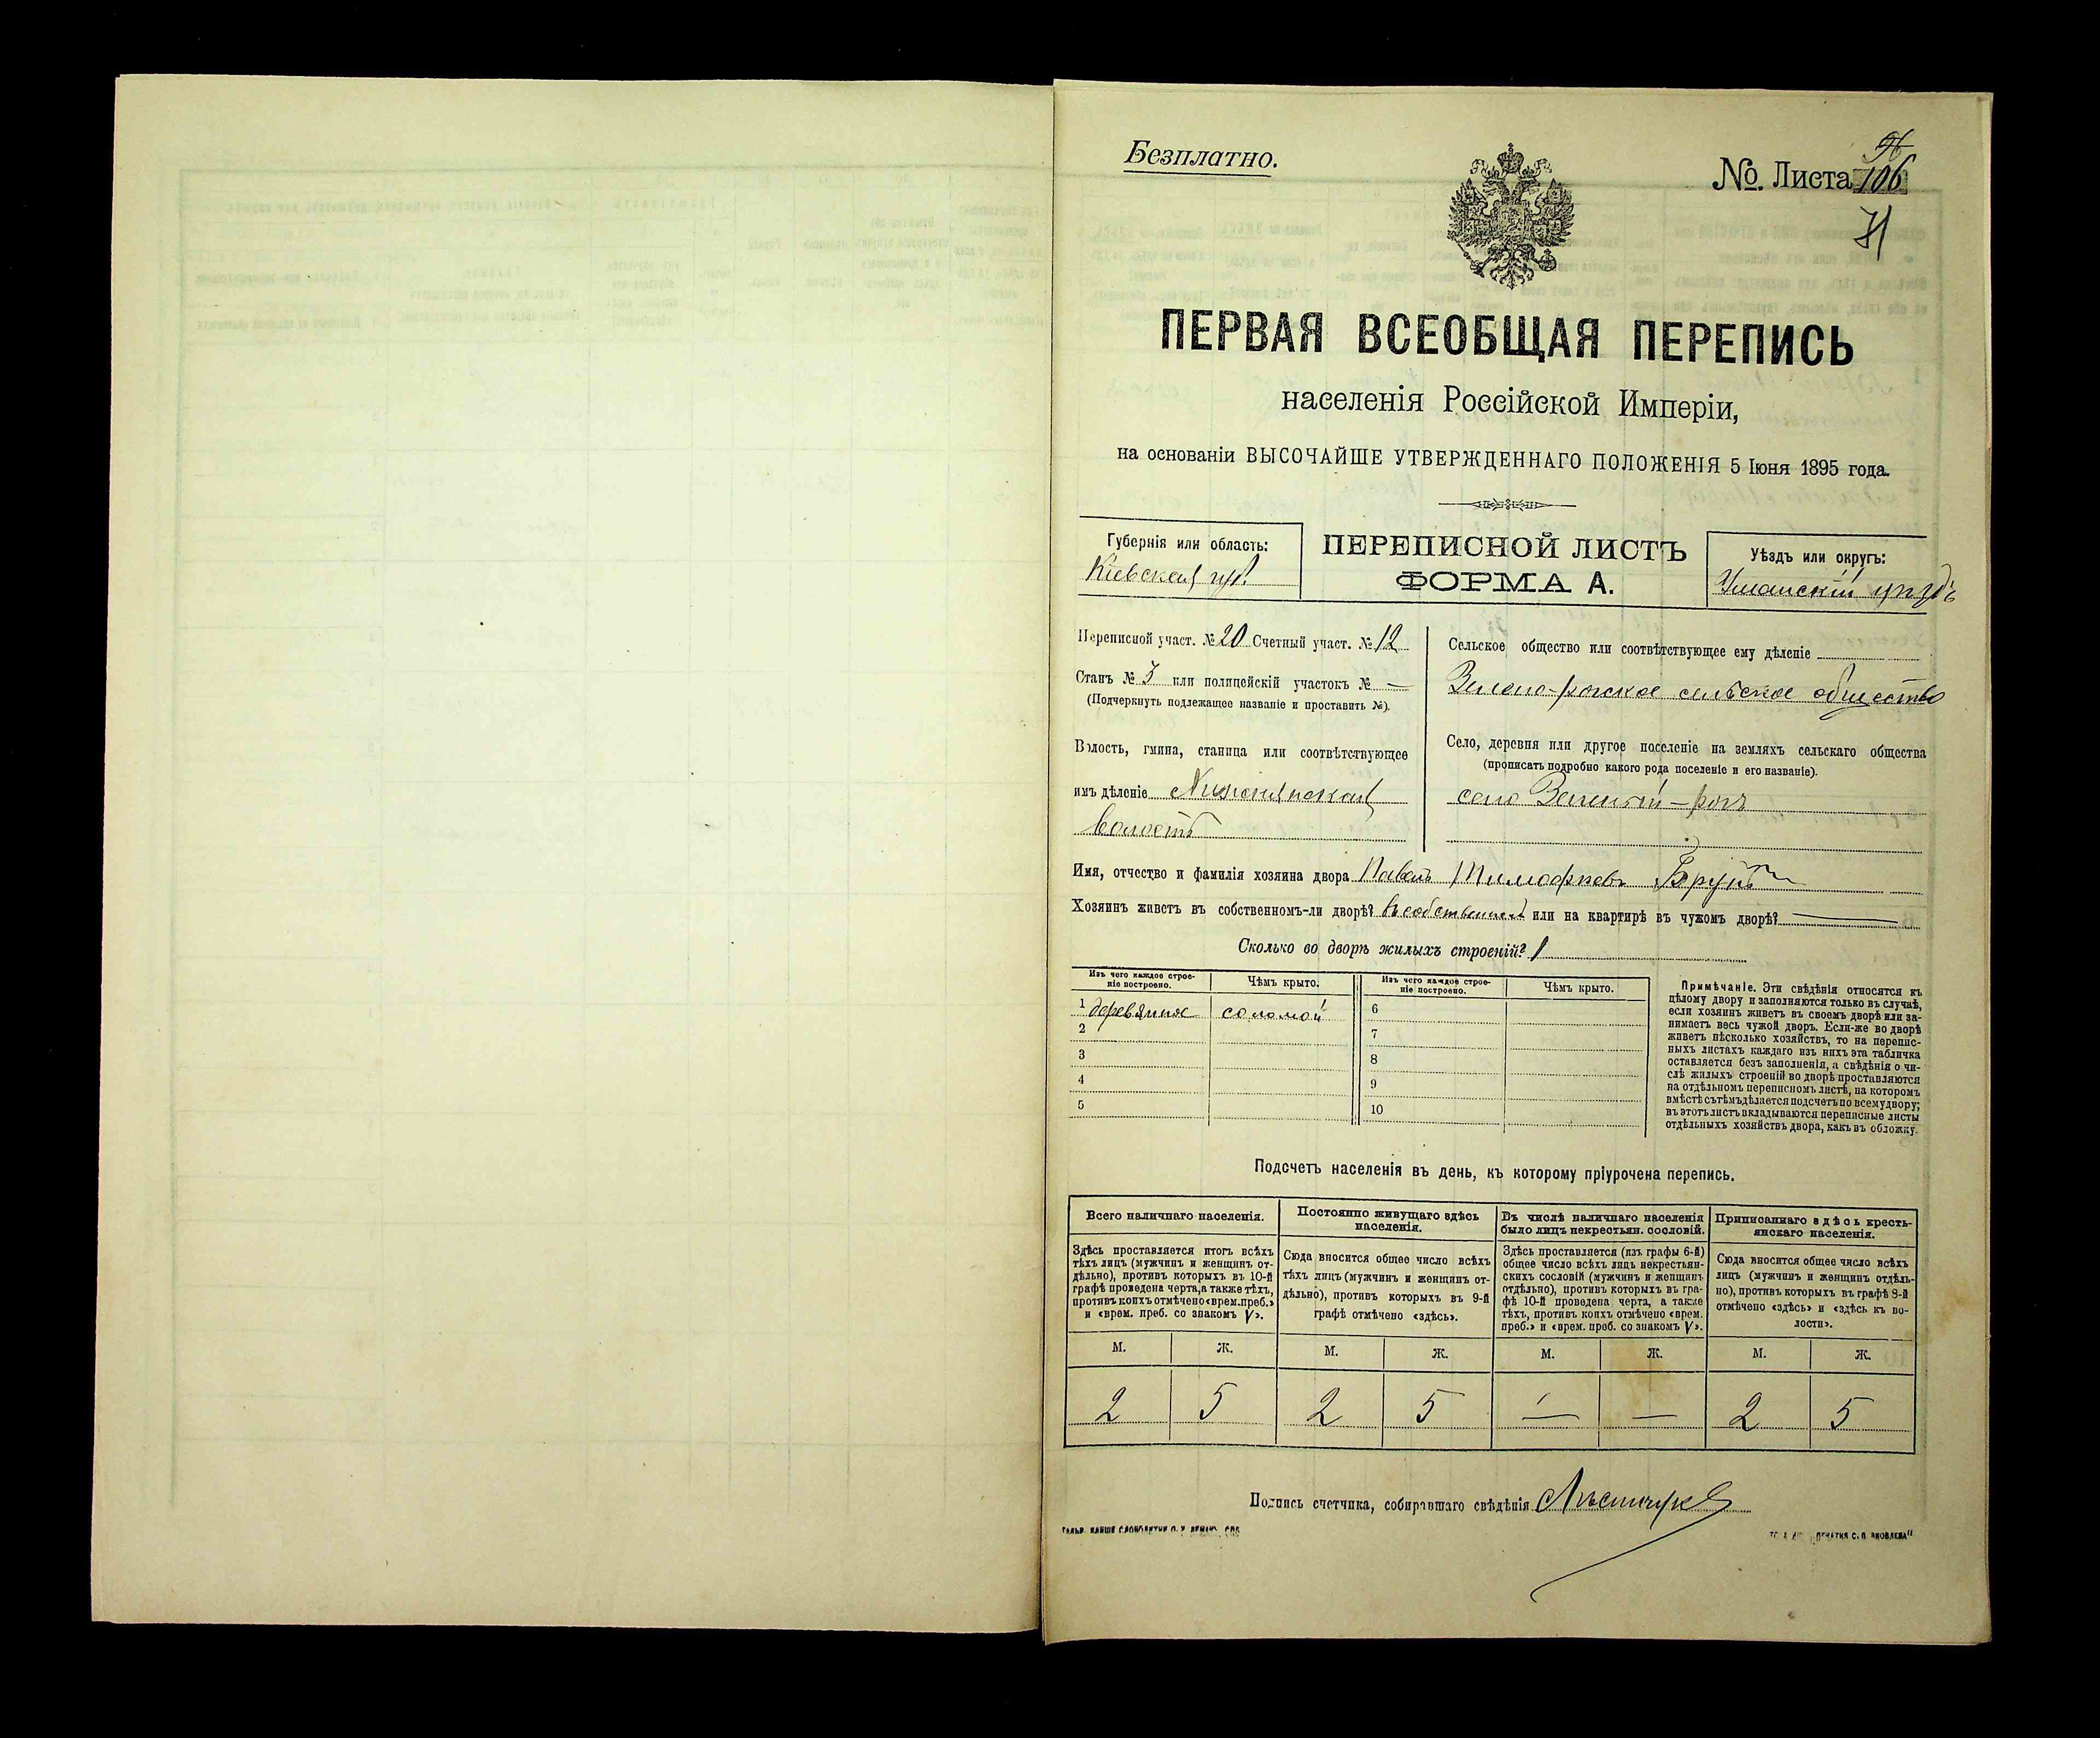 Безплатно.
№ Листа 106
96
71
ПЕРВАЯ ВСЕОБЩАЯ ПЕРЕПИСЬ
населенія Россійской Имперіи,
на основаніи ВЫСОЧАЙШЕ УТВЕРЖДЕННАГО ПОЛОЖЕНІЯ 5 Іюня 1895 года.
Губернія или область:
Кіевская губ.
ПЕРЕПИСНОЙ ЛИСТЪ
ФОРМА А.
Уѣздъ или округъ:
Уманскій уѣздъ
Переписной участ. № 20 Счетный участ. № 12
Станъ № 3 или полицейскій участокъ № —
(Подчеркнуть подлежащее названіе и проставить №).
Волость, гмина, станица или соотвѣтствующее
имъ дѣленіе
волость
Сельское общество или соотвѣтствующее ему дѣленіе
Зелено-рогское сельское общество
Село, деревня или другое поселеніе на земляхъ сельскаго общества
(прописать подробно какого рода поселеніе и его названіе).
село Зеленый-рогъ
Имя, отчество и фамилія хозяина двора Павелъ Тимофѣевъ
Хозяинъ живетъ въ собственномъ-ли дворѣ? въ собственном или на квартирѣ въ чужомъ дворѣ? —
Сколько во дворѣ жилыхъ строеній? 1
Изъ чего каждое строе-
ніе построено.
Чѣмъ крыто.
Изъ чего каждое строе-
ніе построено.
Чѣмъ крыто.
1 деревянное соломой
2
3
4
5
6
7
8
9
10
Примѣчаніе. Эти свѣдѣнія относятся къ
цѣлому двору и заполняются только въ случаѣ,
если хозяинъ живетъ въ своемъ дворѣ или за-
нимаетъ весь чужой дворъ. Если-же во дворѣ
живетъ нѣсколько хозяйствъ, то на перепис-
ныхъ листахъ каждаго изъ нихъ эта табличка
оставляется безъ заполненія, а свѣдѣнія о чи-
слѣ жилыхъ строеній во дворѣ проставляются
на отдѣльномъ переписномъ листѣ, на которомъ
вмѣстѣ съ тѣмъ дѣлается подсчетъ по всему двору;
въ этотъ листъ вкладываются переписные листы
отдѣльныхъ хозяйствъ двора, какъ въ обложку.
Подсчетъ населенія въ день, къ которому пріурочена перепись.
Всего наличнаго населенія.
Здѣсь проставляется итогъ всѣхъ
тѣхъ лицъ (мужчинъ и женщинъ от-
дѣльно), противъ которыхъ въ 10-й
графѣ проведена черта, а также тѣхъ,
противъ коихъ отмѣчено «врем. преб.»
и «врем. преб. со знакомъ V».
Постоянно живущаго здѣсь
населенія.
Сюда вносится общее число всѣхъ
тѣхъ лицъ (мужчинъ и женщинъ от-
дѣльно), противъ которыхъ въ 9-й
графѣ отмѣчено «здѣсь».
Въ числѣ наличнаго населенія
было лицъ некрестьян. сословій.
Здѣсь проставляется (изъ графы 6-й)
общее число всѣхъ лицъ некрестьян-
скихъ сословій (мужчинъ и женщинъ
отдѣльно), противъ которыхъ въ гра-
фѣ 10-й проведена черта, а также
тѣхъ, противъ коихъ отмѣчено «врем.
преб.» и «врем. преб. со знакомъ V».
Приписаннаго здѣсь кресть-
янскаго населенія.
Сюда вносится общее число всѣхъ
лицъ (мужчинъ и женщинъ отдѣль-
но), противъ которыхъ въ графѣ 8-й
отмѣчено «здѣсь» и «здѣсь къ во-
лости».
М. Ж. М. Ж. М. Ж. М. Ж.
2 5 2 5 — — 2 5
Подпись счетчика, собиравшаго свѣдѣнія